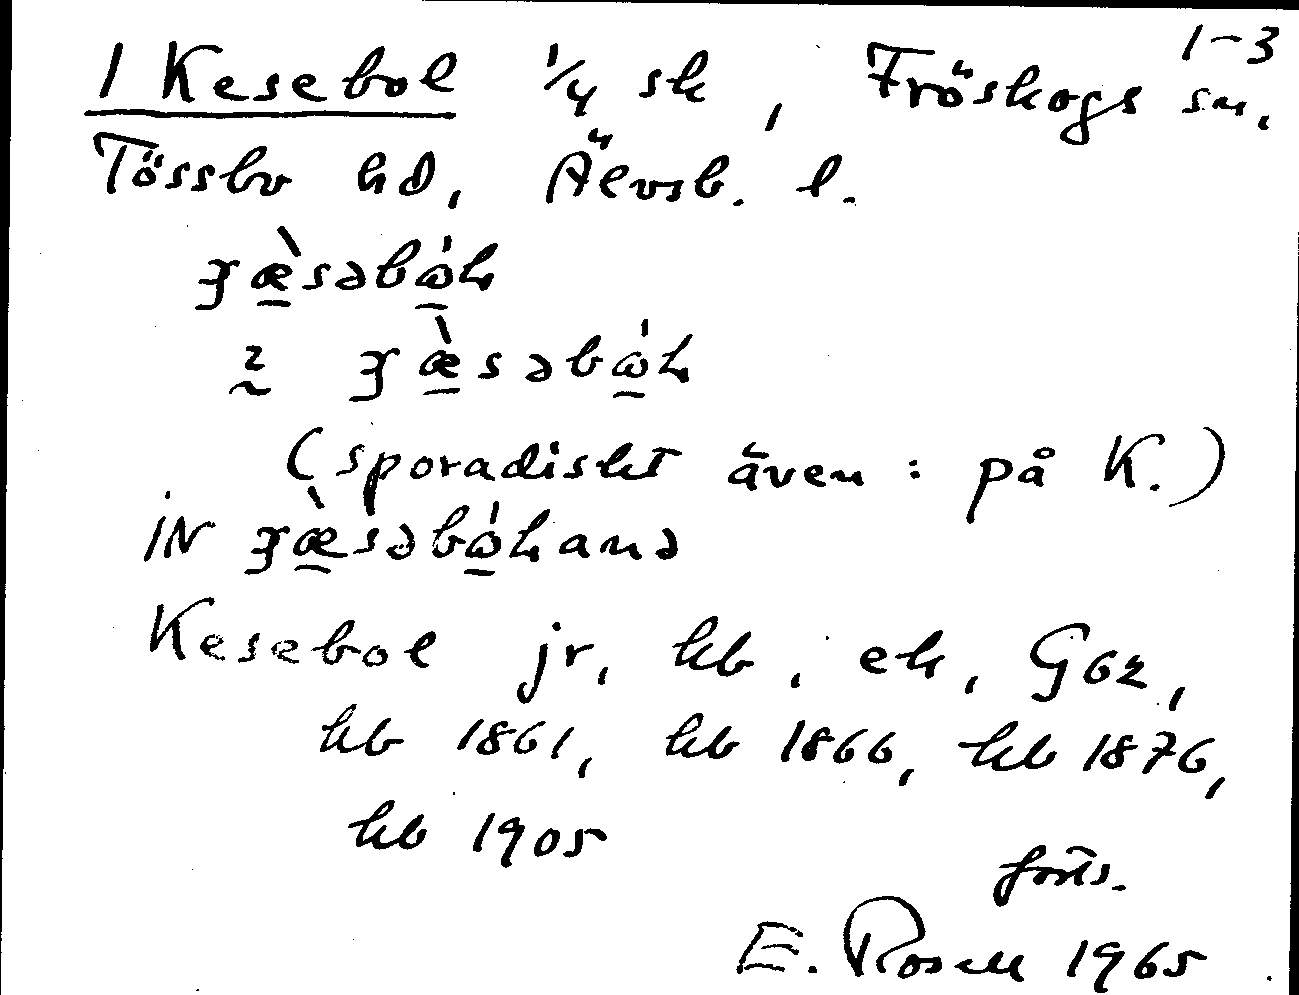 1-3
1 Kesebol 1/4 sk, Fröskogs sn,
Tössbo hd, Älvsb. l.
(sporadiskt även : på K.)
IN
Kesebol jr, kb, ek, G62,
kb 1861, kb 1866, kb 1876,
kb 1905
forts.
E. Rosell 1965